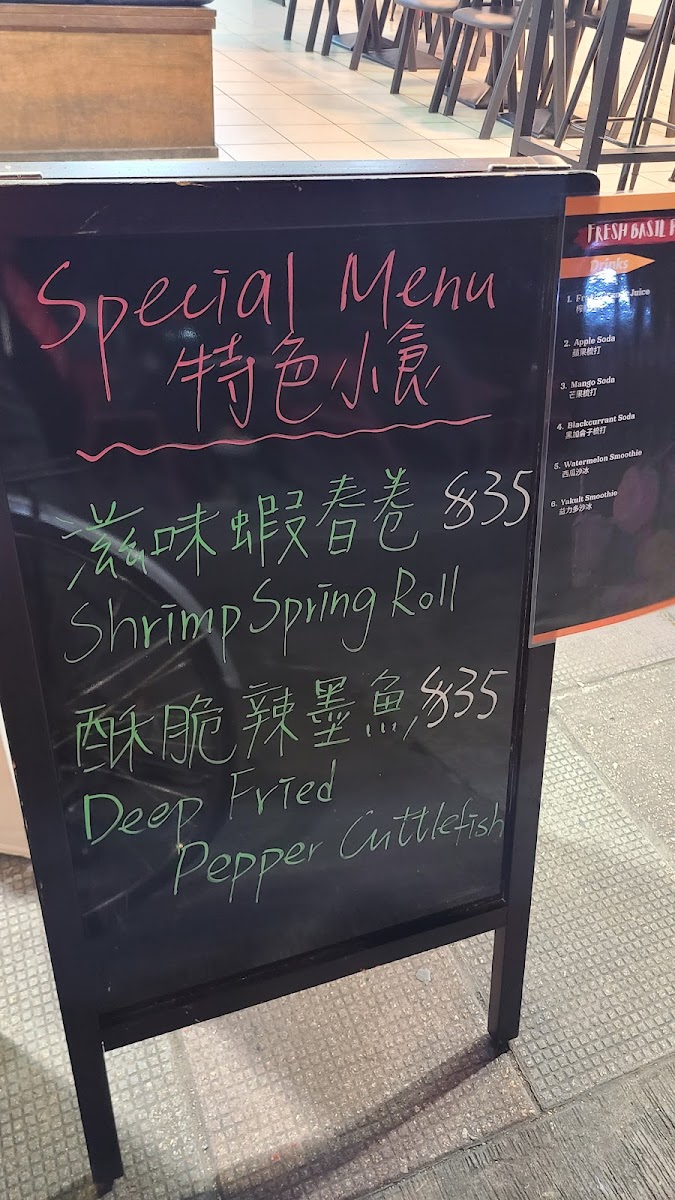 Special Menu
特色小食
滋味蝦春卷 $35
Shrimp Spring Roll
酥脆辣墨魚 $35
Deep Fried
Pepper Cuttlefish
FRESH BASIL
Drinks
1. Juice
2. Apple Soda
蘋果梳打
3. Mango Soda
芒果梳打
4. Blackcurrant Soda
黑加侖子梳打
5. Watermelon Smoothie
西瓜沙冰
6. Yakult Smoothie
益力多沙冰